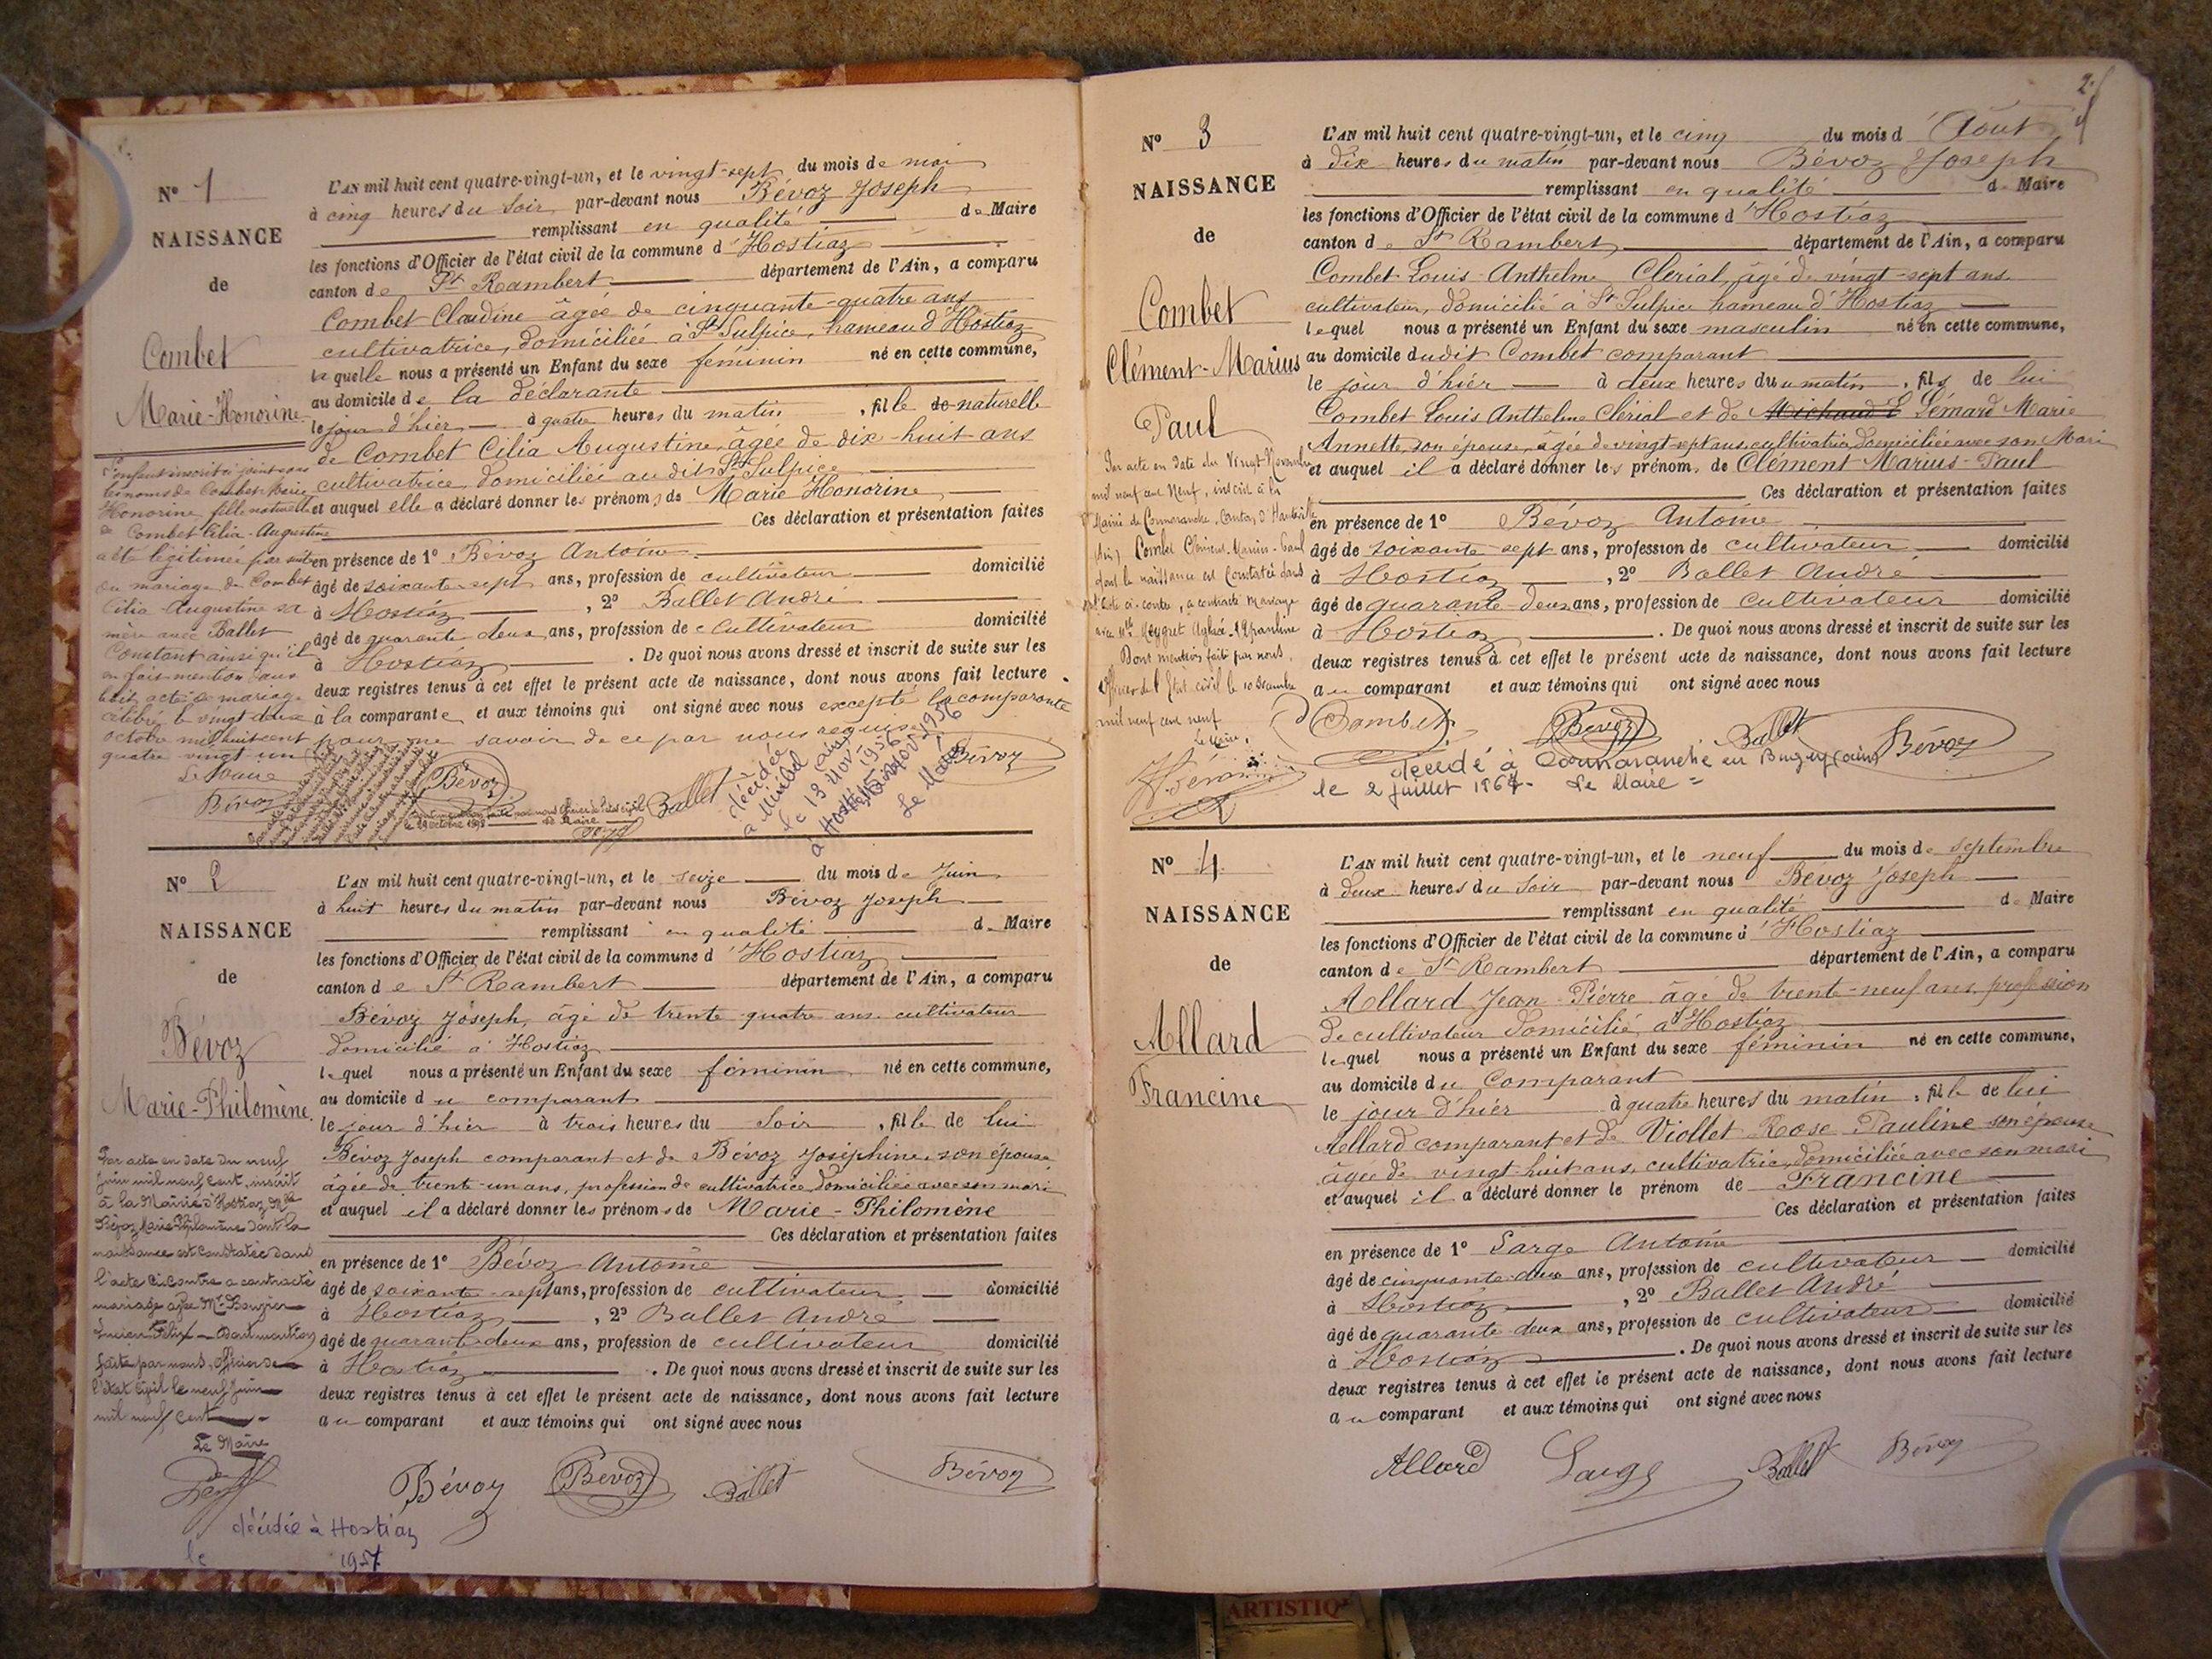 Nº 1
NAISSANCE
de
Combet
Marie-Honorine
L'AN mil huit cent quatre-vingt-un, et le vingt-sept du mois de mai
à cinq heures du soir par-devant nous Bévoz Joseph
remplissant en qualité de Maire
les fonctions d'Officier de l'état civil de la commune d'Hostiaz
canton de St Rambert département de l'Ain, a comparu
Combet Claudine âgée de cinquante-quatre ans
cultivatrice, domiciliée à St Sulpice, hameau d'Hostiaz
laquelle nous a présenté un Enfant du sexe féminin né en cette commune,
au domicile de la déclarante
le jour d'hier à quatre heures du matin, fille de naturelle
de Combet Cilia Augustine, âgée de dix-huit ans
cultivatrice, domiciliée au dit St Sulpice
et auquel elle a déclaré donner les prénoms de Marie Honorine
Ces déclaration et présentation faites
en présence de 1º Bévoz Antoine
âgé de soixante sept ans, profession de cultivateur domicilié
à Hostiaz, 2º Ballet André
âgé de quarante deux ans, profession de cultivateur domicilié
à Hostiaz. De quoi nous avons dressé et inscrit de suite sur les
deux registres tenus à cet effet le présent acte de naissance, dont nous avons fait lecture
à la comparante et aux témoins qui ont signé avec nous excepté la comparante
pour ne savoir de ce par nous requise
L'enfant inscrit ci joint sous
les noms de Combet Marie
Honorine fille naturelle
de Combet Cilia-Augustine
a été légitimée par suite
du mariage de Combet
Cilia Augustine sa
mère avec Ballet
Constant ainsi qu'il
en fait mention dans
acte de mariage
célébré le vingt deux
octobre mil huit cent
quatre vingt un
Le Maire
Bévoz
Bévoz
Ballet
Bévoz
décédée
à Miribel
le 13 Nov 1956
à Hostiaz
Le Maire
Nº 2
NAISSANCE
de
Bévoz
Marie-Philomène
L'AN mil huit cent quatre-vingt-un, et le seize du mois de Juin
à huit heures du matin par-devant nous Bévoz Joseph
remplissant en qualité de Maire
les fonctions d'Officier de l'état civil de la commune d'Hostiaz
canton de St Rambert département de l'Ain, a comparu
Bévoz Joseph, âgé de trente quatre ans cultivateur
domicilié à Hostiaz
lequel nous a présenté un Enfant du sexe féminin né en cette commune,
au domicile du comparant
le jour d'hier à trois heures du soir, fille de lui
Bévoz Joseph comparant et de Bévoz Joséphine, son épouse
âgée de trente-un ans, profession de cultivatrice, domiciliée avec son mari
et auquel il a déclaré donner les prénoms de Marie-Philomène
Ces déclaration et présentation faites
en présence de 1º Bévoz Antoine
âgé de soixante-sept ans, profession de cultivateur domicilié
à Hostiaz, 2º Ballet André
âgé de quarante deux ans, profession de cultivateur domicilié
à Hostiaz. De quoi nous avons dressé et inscrit de suite sur les
deux registres tenus à cet effet le présent acte de naissance, dont nous avons fait lecture
au comparant et aux témoins qui ont signé avec nous
Par acte en date du neuf
juin mil neuf cent, inscrit
à la Mairie d'Hostiaz Mlle
Bévoz Marie-Philomène dont la
naissance est constatée dans
l'acte ci contre a contracté
mariage avec Mr
Lucien Félix - Dont mention
faite par nous, officier de
l'état Civil le neuf Juin
mil neuf cent
Le Maire
Bévoz
Bévoz
Ballet
Bévoz
décédée à Hostiaz
le 1957
2
Nº 3
NAISSANCE
de
Combet
Clément-Marius
Paul
L'AN mil huit cent quatre-vingt-un, et le cinq du mois d'Août
à dix heures du matin par-devant nous Bévoz Joseph
remplissant en qualité de Maire
les fonctions d'Officier de l'état civil de la commune d'Hostiaz
canton de St Rambert département de l'Ain, a comparu
Combet Louis-Anthelme Clérial, âgé de vingt-sept ans
cultivateur, domicilié à St Sulpice hameau d'Hostiaz
lequel nous a présenté un Enfant du sexe masculin né en cette commune,
au domicile dudit Combet comparant
le jour d'hier à deux heures du matin, fils de lui
Combet Louis Anthelme Clérial et de Michaud Lémard Marie
Annette, son épouse, âgée de vingt sept ans, cultivatrice, domiciliée avec son Mari
et auquel il a déclaré donner les prénoms de Clément-Marius-Paul
Ces déclaration et présentation faites
en présence de 1º Bévoz Antoine
âgé de soixante sept ans, profession de cultivateur domicilié
à Hostiaz, 2º Ballet André
âgé de quarante-deux ans, profession de cultivateur domicilié
à Hostiaz. De quoi nous avons dressé et inscrit de suite sur les
deux registres tenus à cet effet le présent acte de naissance, dont nous avons fait lecture
au comparant et aux témoins qui ont signé avec nous
Par acte en date du Vingt Novembre
mil neuf cent Neuf, inscrit à la
Mairie de Cormaranche, Canton d'Hauteville
(Ain) Combet Clément-Marius-Paul
dont la naissance est constatée dans
l'acte ci-contre, a contracté mariage
avec Mlle
Dont mention faite par nous,
Officier de l'Etat civil le 10 Décembre
mil neuf cent neuf
Le Maire,
Combet
Bévoz
Ballet
Bévoz
décédé à Cormaranche en Bugey (Ain)
le 2 juillet 1964 - Le Maire =
Nº 4
NAISSANCE
de
Allard
Francine
L'AN mil huit cent quatre-vingt-un, et le neuf du mois de septembre
à deux heures du soir par-devant nous Bévoz Joseph
remplissant en qualité de Maire
les fonctions d'Officier de l'état civil de la commune d'Hostiaz
canton de St Rambert département de l'Ain, a comparu
Allard Jean-Pierre âgé de trente-neuf ans, profession
de cultivateur domicilié, à Hostiaz
lequel nous a présenté un Enfant du sexe féminin né en cette commune,
au domicile du Comparant
le jour d'hier à quatre heures du matin, fille de lui
Allard comparant et de Viollet Rose Pauline son épouse
âgée de vingt-huit ans, cultivatrice, domiciliée avec son mari
et auquel il a déclaré donner le prénom de Francine
Ces déclaration et présentation faites
en présence de 1º Sarge Antoine
âgé de cinquante deux ans, profession de cultivateur domicilié
à Hostiaz, 2º Ballet André
âgé de quarante deux ans, profession de cultivateur domicilié
à Hostiaz. De quoi nous avons dressé et inscrit de suite sur les
deux registres tenus à cet effet le présent acte de naissance, dont nous avons fait lecture
au comparant et aux témoins qui ont signé avec nous
Allard
Sarge
Ballet
Bévoz
ARTISTIQ